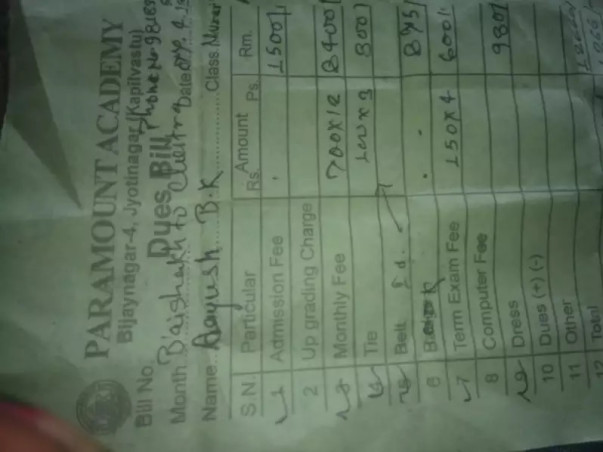 PARAMOUNT ACADEMY
Bijaynagar-4, Jyotinagar (Kapilvastu)
Phone No. 981
Dues Bill
Bill No.
Date
Month Baishakh to Chaitra
Name Aayush B.K Class
S.N. Particular Amount Rm.
Rs. Ps.
1 Admission Fee 1500/
2 Up grading Charge
3 Monthly Fee 700x12 8400/
4 Tie 100x3 300/
5 Belt
6 Book 895/
7 Term Exam Fee 150x4 600/
8 Computer Fee
Dress 980/
10 Dues (+) (-)
11 Other
12 Total